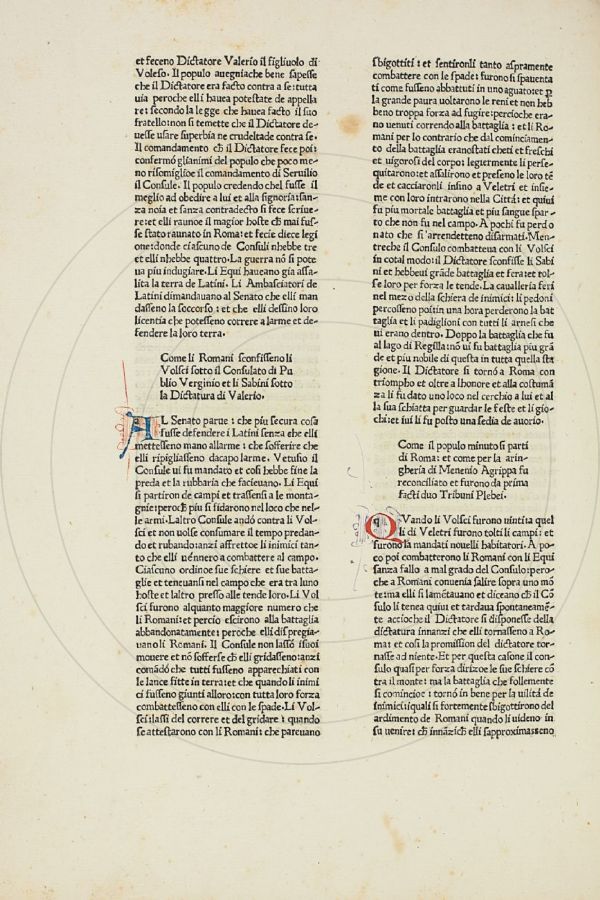 et feceno Dictatore Valerio il figliuolo di
Voleso. Il populo auegniache bene sapesse
che il Dictatore era facto contra a se: tutta
uia peroche elli hauea potestate de appella
re: secondo la legge che hauea facto il suo
fratello: non si temette che il Dictatore de-
uesse usare superbia ne crudeltade contra se.
Il comandamento ch̄ il Dictatore fece poi:
confermó glianimi del populo che poco me-
no risomiglioe il comandamento di Seruilio
il Consule. Il populo credendo chel fusse il
meglio ad obedire a lui et alla signoria: san-
za noia et sanza contradecto si fece scriue-
re: et elli raunoe il magior hoste ch̄ mai fus-
se stato raunato in Roma: et fecie diece legi
one: donde ciascuno de Consuli nhebbe tre
et elli nhebbe quattro. La guerra nō si pote
ua piu indugiare. Li Equi haueano gia assa-
lita la terra de Latini. Li Ambasciatori de
Latini dimandauano al Senato che elli man
dasseno la soccorso: et che elli dessino loro
licentia che potesseno correre a larme et de-
fendere la loro terra.
Come li Romani sconfisseno li
Volsci sotto il Consulato di Pu
blio Verginio et li Sabini sotto
la Dictatura di Valerio.
AL Senato parue: che piu secura cosa
fusse defendere i Latini senza che elli
mettesseno mano allarme: che sofferire che
elli ripigliasseno dacapo larme. Vetusio il
Consule ui fu mandato et cosi hebbe fine la
preda et la rubbaria che facieuano. Li Equi
si partiron de campi et trassensi a le monta-
gnie: peroch̄ piu si fidarono nel loco che nel-
le armi. Laltro Consule andó contra li Vol-
sci et non uolse consumare il tempo predan-
do et rubando: anzi affrettoe li inimici tan-
to che elli uēnnero a combattere al campo.
Ciascuno ordinoe sue schiere et sue batta-
glie et teneuansi nel campo che era tra luno
hoste et laltro presso alle tende loro. Li Vol
sci furono alquanto maggiore numero che
li Romani: et percio escirono alla battaglia
abbandonatamente: peroche elli dispregia-
uano li Romani. Il Consule non lassó isuoi
mouere et nó sofferse ch̄ elli gridasseno: anzi
comádó che tutti fusseno apparechiati con
le lance fitte in terra: et che quando li inimi
ci fusseno giunti alloro: con tutta loro forza
combattesseno con elli con le spade. Li Vol-
sci: lassi del correre et del gridare: quando
se attestarono con li Romani: che pareuano
sbigottiti: et sentironli tanto aspramente
combattere con le spade: furono sì spauenta
ti come fusseno abbattuti in uno aguato: et p
la grande paura uoltarono le reni et non heb
beno troppa forza ad fugire: percioche era-
no uenuti correndo alla battaglia: et li Ro-
mani per lo contrario che dal cominciamen-
to della battaglia eranostati cheti et freschi
et uigorosi del corpo: legiermente li perse-
quitarono: et assalirono et preseno le loro tē
de et cacciaronli insino a Veletri et insie-
me con loro intrarono nella Cittá: et quiui
fu piu mortale battaglia et piu sangue spar-
to che non fu nel campo. A pochi fu perdo
nato che si arrendetteno disarmati. Men-
treche il Consulo combatteua con li Volsci
in cotal modo: il Dictatore sconfisse li Sabi
ni et hebbeui grāde battaglia et fera: et tol-
se loro per forza le tende. La caualleria feri
nel mezo della schiera de inimici: li pedoni
percosseno poi: tin una hora perderono la bat
taglia et li padiglioni con tutti li arnesi che
ui erano dentro. Doppo la battaglia che fu
al lago di Regilla: nō ui fu battaglia piu grā
de et piu nobile di questa in tutta quella sta
gione. Il Dictatore si tornó a Roma con
triompho et oltre a lhonore et alla costumā
za li fu dato uno loco nel cerchio a lui et al
la sua schiatta per guardar le feste et li gio-
chi: et iui li fu posto una sedia de auorio.
Come il populo minuto si parti
di Roma: et come per la arin-
gheria di Menenio Agrippa fu
reconciliato et furono da prima
facti duo Tribuni Plebei.
QVando li Volsci furono uinti: a quel
li di Veletri furono tolti li campi: et
furono la mandati nouelli habitatori. A po-
co poi combatterono li Romani con li Equi
sanza fallo a mal grado del Consulo: pero-
che a Romani conuenia salire sopra uno mó
te: ma elli si lamétauano et diceano ch̄ il Có
sulo li tenea quiui et tardaua spontaneamē-
te accioche il Dictatore si disponesse della
dictatura innanzi che elli tornasseno a Ro-
ma: et cosi la promission del dictatore tor-
nasse ad niente. Et per questa casone il con-
sulo quasi per forza dirizoe le sue schiere có
tra il monte: ma la battaglia che follemente
si comincioe: tornó in bene per la uilitá de
inimici: iquali si fortemente sbigottirono del
ardimento de Romani quando li uideno in
su uenire: ch̄ innázich̄ elli sapproximasseno